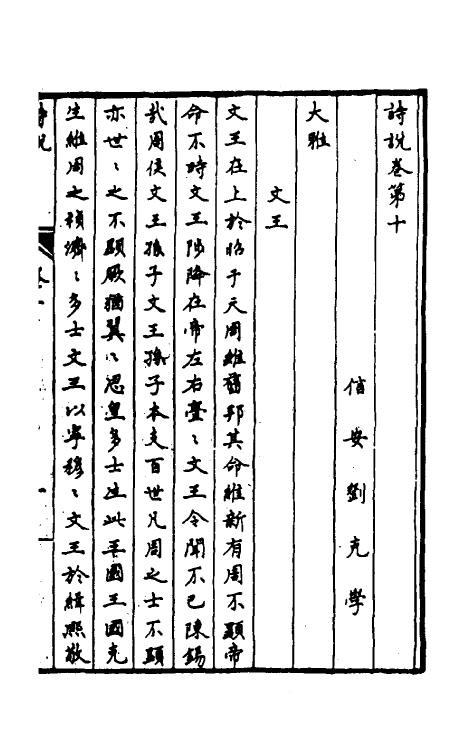 詩說卷第十
信安劉克學
大雅
文王
文王在上於昭于天周維舊邦其命維新有周不顯帝
命不時文王陟降在帝左右亹〻文王令聞不已陳錫
哉周侯文王孫子文王孫子本支百世凡周之士不顯
亦世〻之不顯厥猶翼〻思皇多士生此王國王國克
生維周之楨濟〻多士文王以寧穆〻文王於緝熙敬
詩說